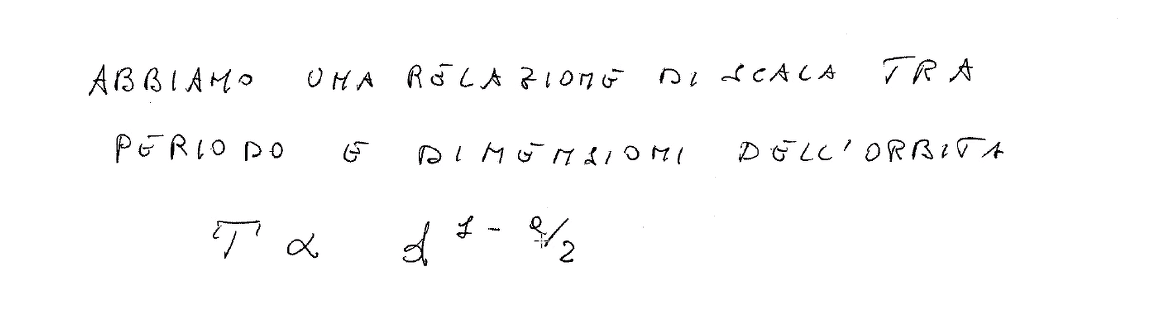 ABBIAMO UNA RELAZIONE DI SCALA TRA
PERIODO E DIMENSIONI DELL'ORBITA
T ∝ d^{1 - e/2}